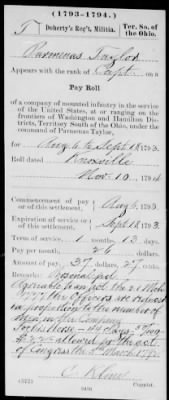 (1793-1794.)
T | Doherty's Reg't, Militia. | Ter. So. of the Ohio.
Parmenas Taylor
Appears with the rank of Capt. on a
Pay Roll
of a company of mounted infantry in the service of
the United States, at or ranging on the
frontiers of Washington and Hamilton Districts,
Territory South of the Ohio, under the
command of Parmenas Taylor,
for Aug 6 to Sept 18, 1793
Roll dated Knoxville
Nov. 10, 1794
Commencement of pay or of this settlement, Aug 6, 1793
Expiration of service or of this settlement, Sept 18, 1793
Term of service, 1 months, 13 days.
Pay per month, 26 dollars
Amount of pay, 37 dollars, 27 cents.
Remarks:
the Officers are
in proportion to the number of
men in the Company
for his Horse - 44 days
allowed for the act
of Congress the 2d March
Copyist.